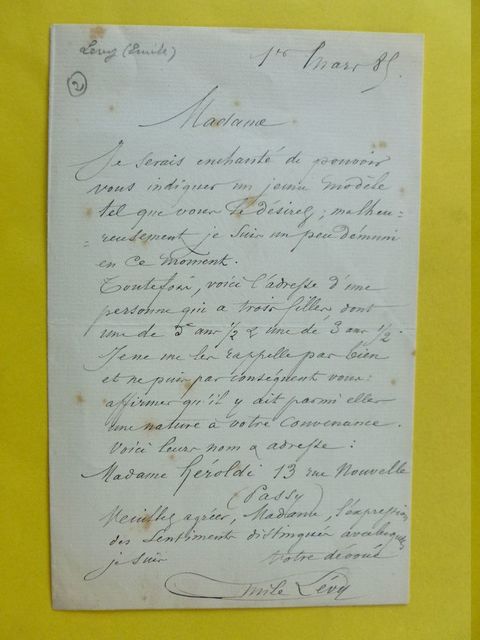 Levy (Emile)
2
1er Mars 85.
Madame
Je serais enchanté de pouvoir
vous indiquer un jeune modèle
tel que vous le désirez; malheu-
-reusement je suis un peu démuni
en ce moment.
Toutefois, voici l'adresse d'une
personne qui a trois filles dont
une de 5 ans 1/2 & une de 3 ans 1/2.
Je ne me les rappelle pas bien
et ne puis par conséquent vous
affirmer qu'il y ait parmi elles
une nature à votre convenance.
Voici leurs nom & adresse:
Madame Héroldi 13 rue Nouvelle
Passy
Veuillez agréer, Madame, l'expression
des sentiments distingués avec lesquels
je suis votre dévoué
Emile Lévy